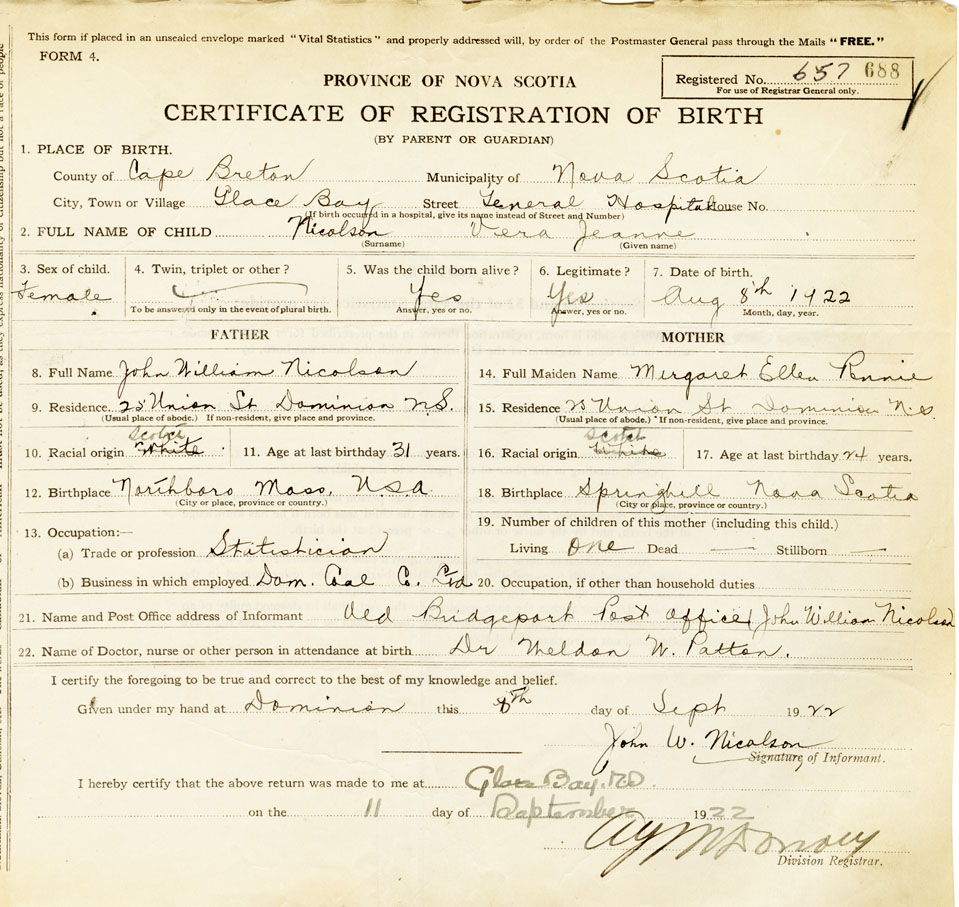 This form if placed in an unsealed envelope marked "Vital Statistics" and properly addressed will, by order of the Postmaster General pass through the Mails "FREE."
FORM 4.
Registered No. 657 688
For use of Registrar General only.
PROVINCE OF NOVA SCOTIA
CERTIFICATE OF REGISTRATION OF BIRTH
(BY PARENT OR GUARDIAN)
1. PLACE OF BIRTH.
County of Cape Breton Municipality of Nova Scotia
City, Town or Village Glace Bay Street General Hospital House No.
(If birth occurred in a hospital, give its name instead of Street and Number)
2. FULL NAME OF CHILD Nicolson Vera Jeanne
(Surname) (Given name)
3. Sex of child. 4. Twin, triplet or other? 5. Was the child born alive? 6. Legitimate? 7. Date of birth.
Female Yes Yes Aug 8th 1922
To be answered only in the event of plural birth. Answer, yes or no. Answer, yes or no. Month, day, year.
FATHER MOTHER
8. Full Name John William Nicolson 14. Full Maiden Name Mergaret Ellen Rennie
9. Residence 25 Union St Dominion N.S. 15. Residence 25 Union St Dominion N.S.
(Usual place of abode.) If non-resident, give place and province. (Usual place of abode.) If non-resident, give place and province.
Scotch Scotch
10. Racial origin White 11. Age at last birthday 31 years. 16. Racial origin White 17. Age at last birthday 24 years.
12. Birthplace Northboro Mass. USA 18. Birthplace Springhill Nova Scotia
(City or place, province or country.) (City or place, province or country.)
13. Occupation:— 19. Number of children of this mother (including this child.)
(a) Trade or profession Stitistician Living One Dead — Stillborn —
(b) Business in which employed Dom. Coal C. Ltd 20. Occupation, if other than household duties
21. Name and Post Office address of Informant Old Bridgeport Post Office John William Nicolson
22. Name of Doctor, nurse or other person in attendance at birth Dr Weldon W. Patton.
I certify the foregoing to be true and correct to the best of my knowledge and belief.
Given under my hand at Dominion this 8th day of Sept 1922
John W. Nicolson
Signature of Informant.
I hereby certify that the above return was made to me at Glace Bay.
on the 11 day of September 1922
Division Registrar.